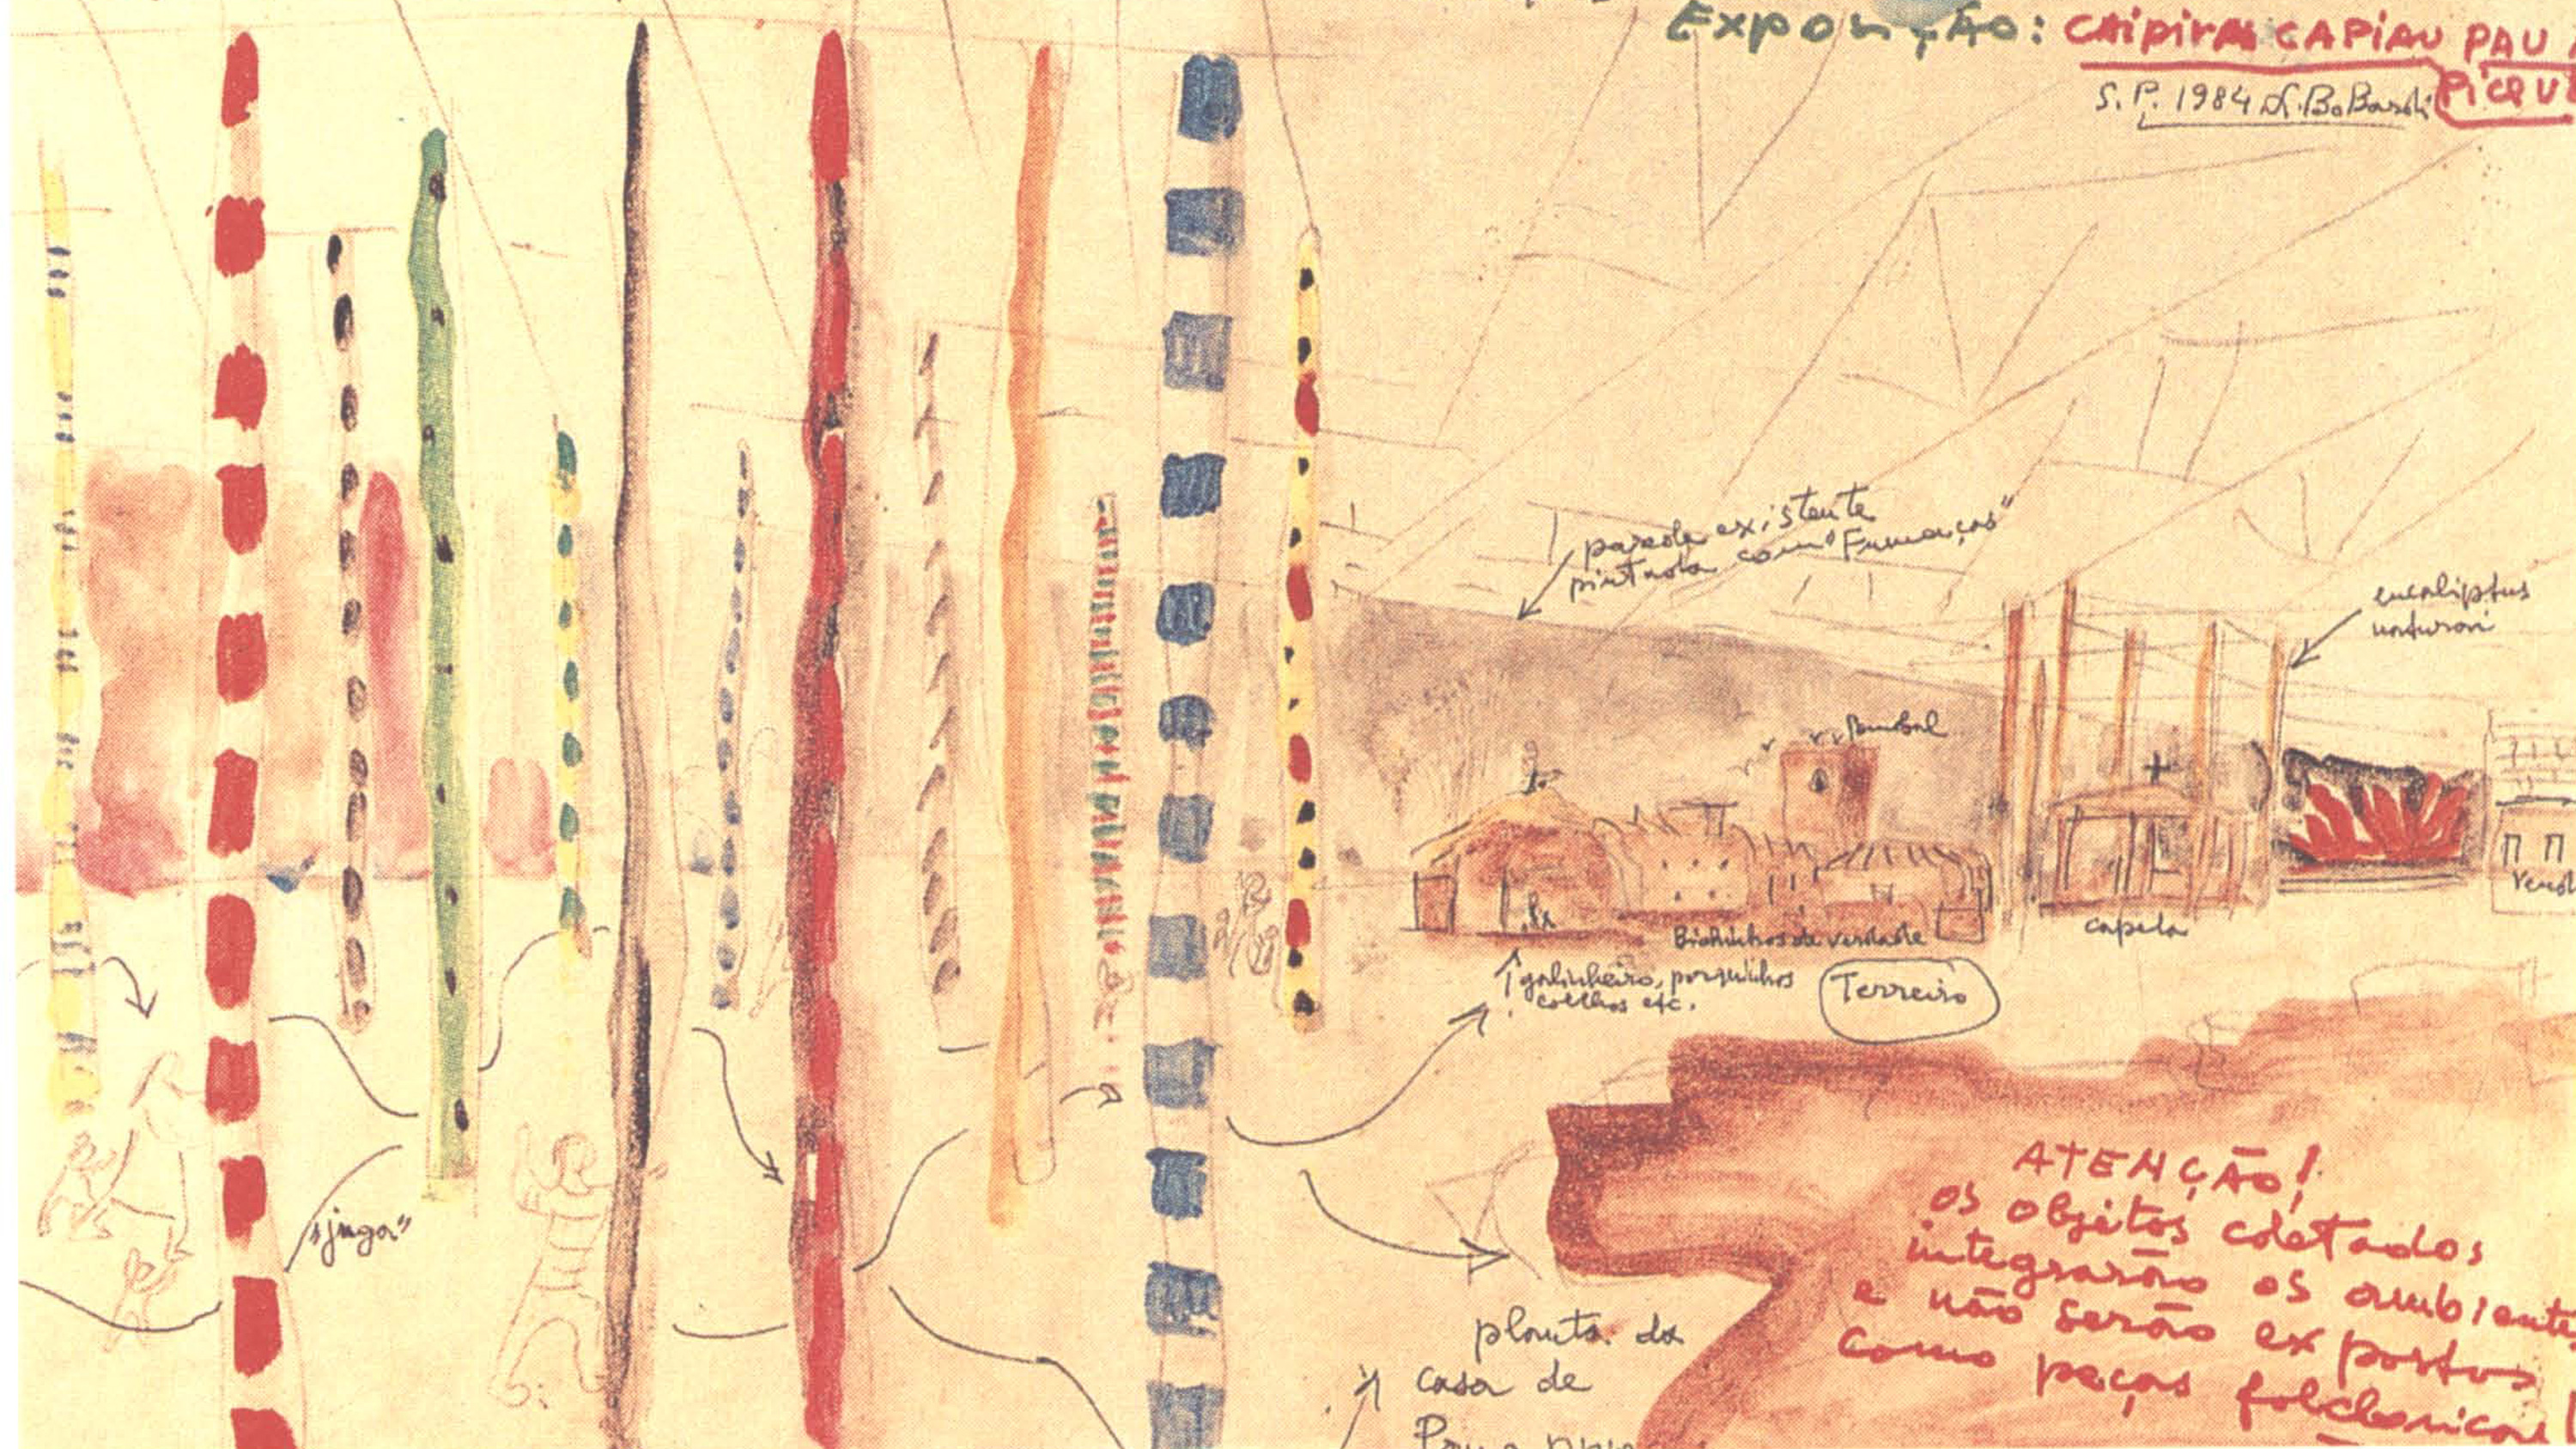 Exposição: CAIPIRAS CAPIAU PAU
S.P. 1984 L. Bo Bardi
parede existente
pintada com "Fumaças"
eucaliptus
naturais
pombal
Bichinhos de verdade
capela
galinheiro, porquinhos
coelhos etc.
Terreiro
"jinga"
planta da
casa de
ATENÇÃO!
os objetos coletados
integrarão os ambiente
e não serão expostos
como peças folcloricas!